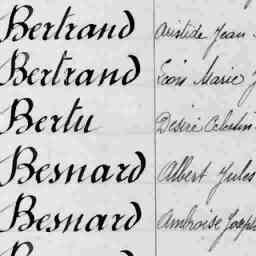 Bertrand Aristide Jean
Bertrand Léon Marie J
Bertu Désiré Célestin
Besnard Albert Jules
Besnard Ambroise Joseph